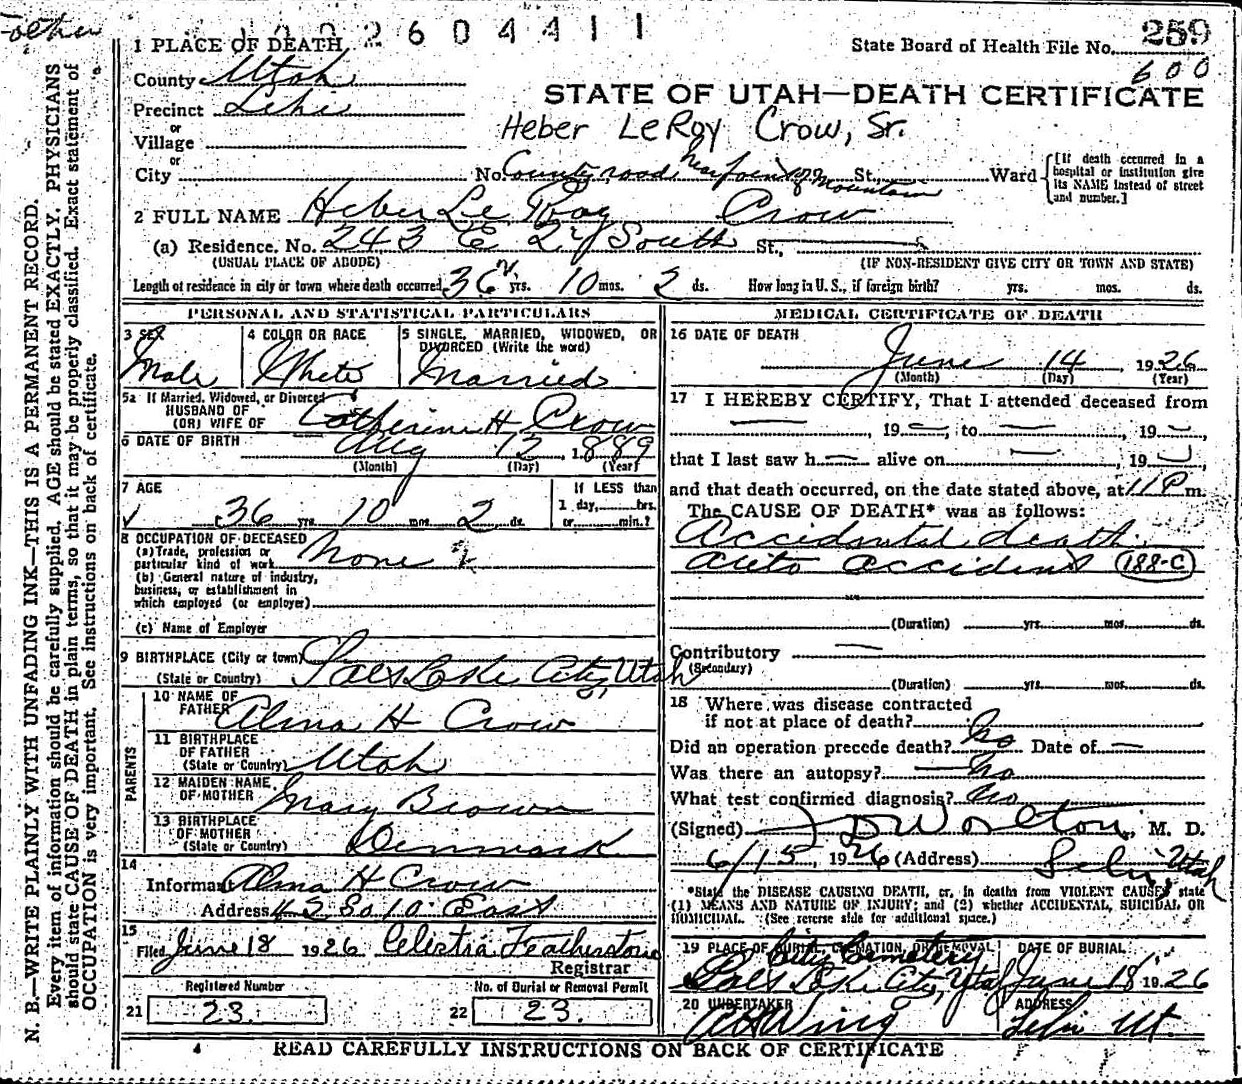 Father
1002604411
1 PLACE OF DEATH
State Board of Health File No. 259
600
County Utah
Precinct Lehi
or
Village
or
City
STATE OF UTAH—DEATH CERTIFICATE
Heber LeRoy Crow, Sr.
No. County road, near point of Mountain St., Ward
[If death occurred in a hospital or institution give its NAME instead of street and number.]
2 FULL NAME Heber Le Roy Crow
(a) Residence. No. 243 E 2nd South St.,
(USUAL PLACE OF ABODE) (IF NON-RESIDENT GIVE CITY OR TOWN AND STATE)
Length of residence in city or town where death occurred 36 yrs. 10 mos. 2 ds. How long in U. S., if foreign birth? yrs. mos. ds.
PERSONAL AND STATISTICAL PARTICULARS
3 SEX
Male
4 COLOR OR RACE
White
5 SINGLE, MARRIED, WIDOWED, OR DIVORCED (Write the word)
Married
5a If Married, Widowed, or Divorced
HUSBAND OF
(OR) WIFE OF Catherine H Crow
6 DATE OF BIRTH Aug 12, 1889
(Month) (Day) (Year)
7 AGE
36 yrs. 10 mos. 2 ds.
If LESS than
1 day, hrs.
or min.?
8 OCCUPATION OF DECEASED
(a) Trade, profession or
particular kind of work None
(b) General nature of industry,
business, or establishment in
which employed (or employer)
(c) Name of Employer
9 BIRTHPLACE (City or town)
(State or Country) Salt Lake City, Utah
PARENTS
10 NAME OF
FATHER Alma H Crow
11 BIRTHPLACE
OF FATHER
(State or Country) Utah
12 MAIDEN NAME
OF MOTHER Mary Brown
13 BIRTHPLACE
OF MOTHER
(State or Country) Denmark
14
Informant Alma H Crow
Address 45 So 10 East
15
Filed June 18 1926 Celestia Featherstone
Registrar
Registered Number
21 23.
No. of Burial or Removal Permit
22 23.
MEDICAL CERTIFICATE OF DEATH
16 DATE OF DEATH
June 14 1926
(Month) (Day) (Year)
17 I HEREBY CERTIFY, That I attended deceased from
, 19 , to , 19 ,
that I last saw h alive on , 19 ,
and that death occurred, on the date stated above, at 11 P m.
The CAUSE OF DEATH* was as follows:
Accidental death.
Auto accident 188-C
(Duration) yrs. mos. ds.
Contributory
(Secondary)
(Duration) yrs. mos. ds.
18 Where was disease contracted
if not at place of death? No
Did an operation precede death? Date of
Was there an autopsy? No
What test confirmed diagnosis? No
(Signed) M. D.
6/15, 1926 (Address) Lehi, Utah
*State the DISEASE CAUSING DEATH, or, in deaths from VIOLENT CAUSES, state
(1) MEANS AND NATURE OF INJURY; and (2) whether ACCIDENTAL, SUICIDAL OR
HOMICIDAL. (See reverse side for additional space.)
19 PLACE OF BURIAL, CREMATION, OR REMOVAL
City Cemetery
Salt Lake City, Utah
DATE OF BURIAL
June 18 1926
20 UNDERTAKER
A H Wing
ADDRESS
Lehi Ut.
4 READ CAREFULLY INSTRUCTIONS ON BACK OF CERTIFICATE
N. B.—WRITE PLAINLY WITH UNFADING INK—THIS IS A PERMANENT RECORD.
Every item of information should be carefully supplied. AGE should be stated EXACTLY. PHYSICIANS
should state CAUSE OF DEATH in plain terms, so that it may be properly classified. Exact statement of
OCCUPATION is very important. See instructions on back of certificate.